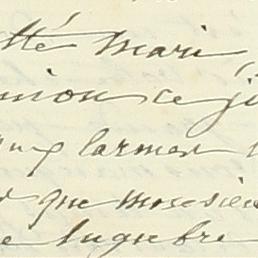 tté Mari,
nion ce j
larmes
que Monsieu
e lugubre